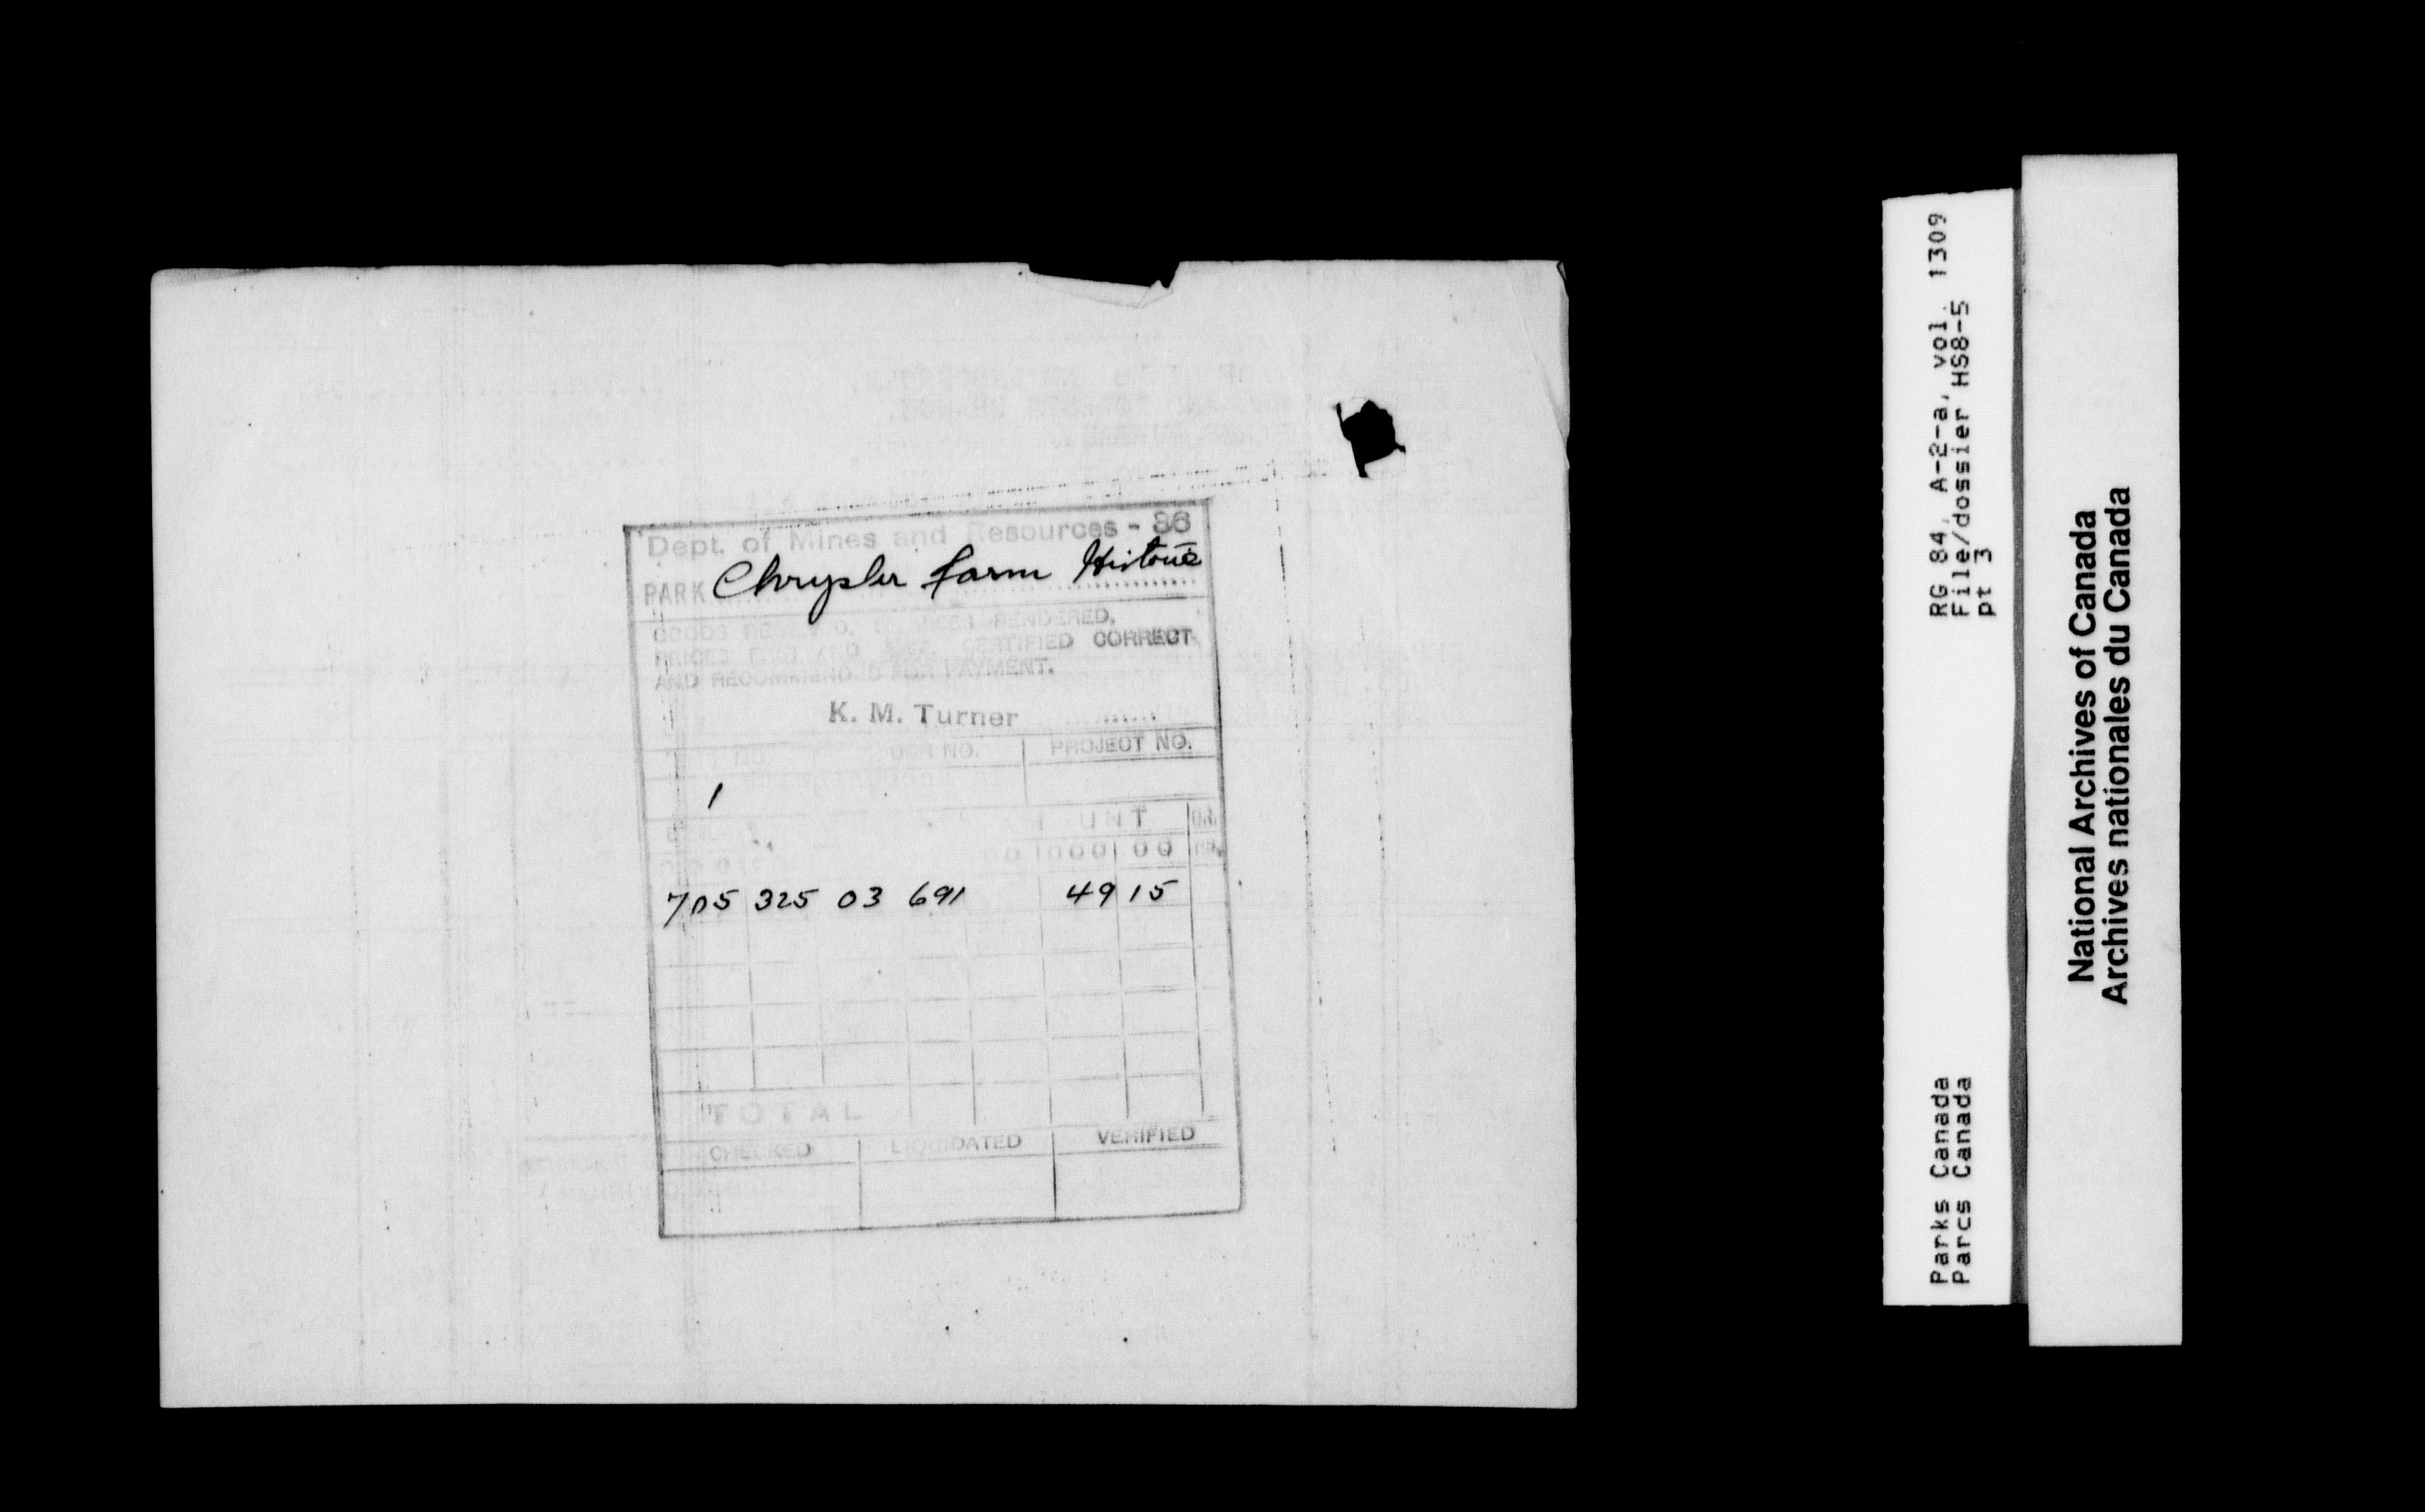 Dept. of Mines and Resources - 36
PARK Chrysler Farm Historic
GOODS RECEIVED, SERVICES RENDERED,
PRICES FAIR AND JUST, CERTIFIED CORRECT
AND RECOMMENDED FOR PAYMENT.
K. M. Turner
NO. NO. PROJECT NO.
1
DR.
00 000 00
705 325 03 691 49 15
TOTAL
CHECKED LIQUIDATED VERIFIED
RG 84, A-2-a, vol. 1309
File/dossier HS8-5
pt 3
Parks Canada
Parcs Canada
National Archives of Canada
Archives nationales du Canada